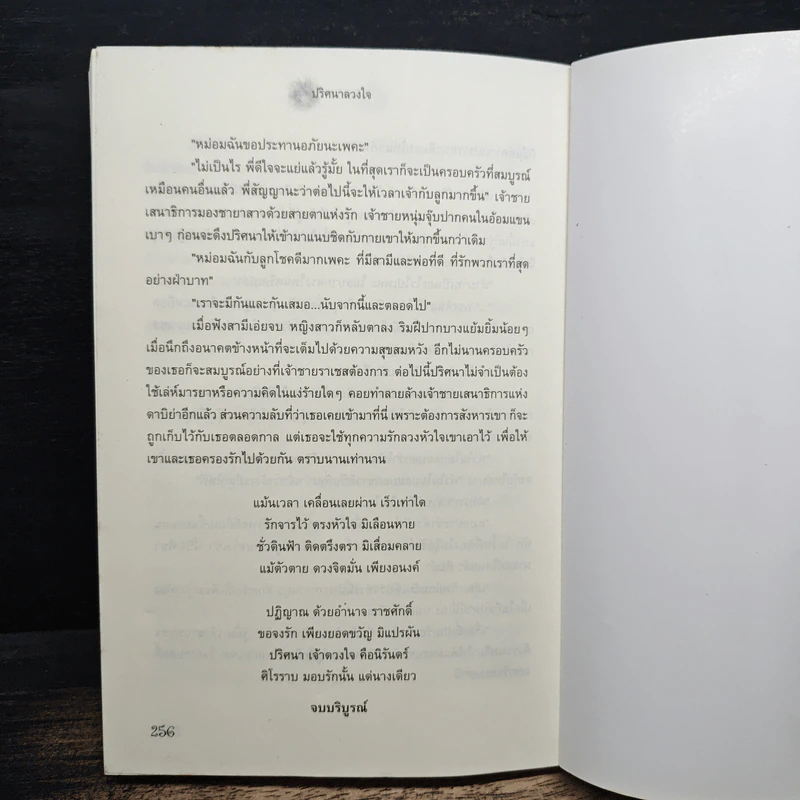 ปริศนาลวงใจ
"หม่อมฉันขอประทานอภัยนะเพคะ"
"ไม่เป็นไร พี่ดีใจจะแย่แล้วรู้มั้ย ในที่สุดเราก็จะเป็นครอบครัวที่สมบูรณ์
เหมือนคนอื่นแล้ว พี่สัญญานะว่าต่อไปนี้จะให้เวลาเจ้ากับลูกมากขึ้น" เจ้าชาย
เสนาธิการมองชายาสาวด้วยสายตาแห่งรัก เจ้าชายหนุ่มจุ๊บปากคนในอ้อมแขน
เบาๆ ก่อนจะดึงปริศนาให้เข้ามาแนบชิดกับกายเขาให้มากขึ้นกว่าเดิม
"หม่อมฉันกับลูกโชคดีมากเพคะ ที่มีสามีและพ่อที่ดี ที่รักพวกเราที่สุด
อย่างฝ่าบาท"
"เราจะมีกันและกันเสมอ...นับจากนี้และตลอดไป"
เมื่อฟังสามีเอ่ยจบ หญิงสาวก็หลับตาลง ริมฝีปากบางแย้มยิ้มน้อยๆ
เมื่อนึกถึงอนาคตข้างหน้าที่จะเต็มไปด้วยความสุขสมหวัง อีกไม่นานครอบครัว
ของเธอก็จะสมบูรณ์อย่างที่เจ้าชายราเชสต้องการ ต่อไปนี้ปริศนาไม่จำเป็นต้อง
ใช้เล่ห์มารยาหรือความคิดในแง่ร้ายใดๆ คอยทำลายล้างเจ้าชายเสนาธิการแห่ง
ดาบิย่าอีกแล้ว ส่วนความลับที่ว่าเธอเคยเข้ามาที่นี่ เพราะต้องการสังหารเขา ก็จะ
ถูกเก็บไว้กับเธอตลอดกาล แต่เธอจะใช้ทุกความรักลวงหัวใจเขาเอาไว้ เพื่อให้
เขาและเธอครองรักไปด้วยกัน ตราบนานเท่านาน
แม้นเวลา เคลื่อนเลยผ่าน เร็วเท่าใด
รักจารไว้ ตรงหัวใจ มิเลือนหาย
ชั่วดินฟ้า ติดตรึงตรา มิเสื่อมคลาย
แม้ตัวตาย ดวงจิตมั่น เพียงอนงค์
ปฏิญาณ ด้วยอำนาจ ราชศักดิ์
ขอจงรัก เพียงยอดขวัญ มิแปรผัน
ปริศนา เจ้าดวงใจ คือนิรันดร์
ศิโรราบ มอบรักนั้น แต่นางเดียว
จบบริบูรณ์
256